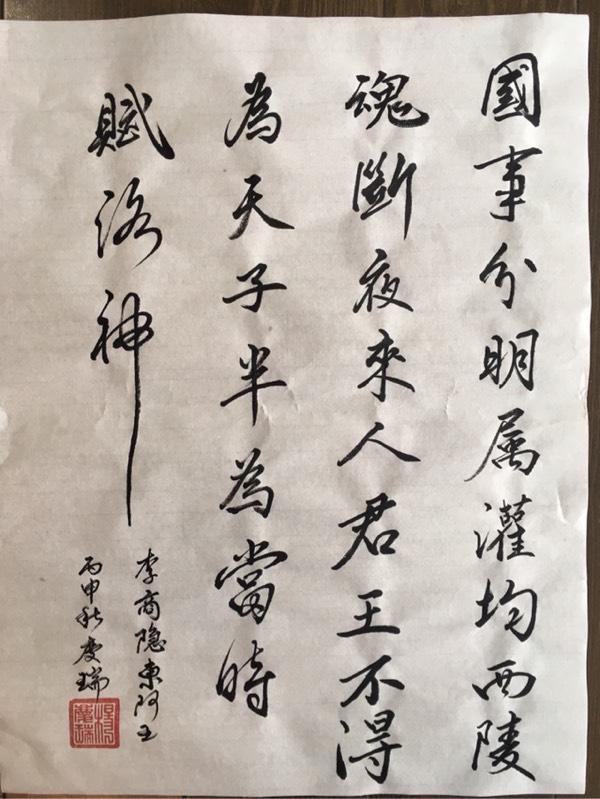 國事分明属灌均西陵
魂斷夜來人君王不得
為天子半為當時
賦洛神
李商隐東阿王
丙申秋慶瑞